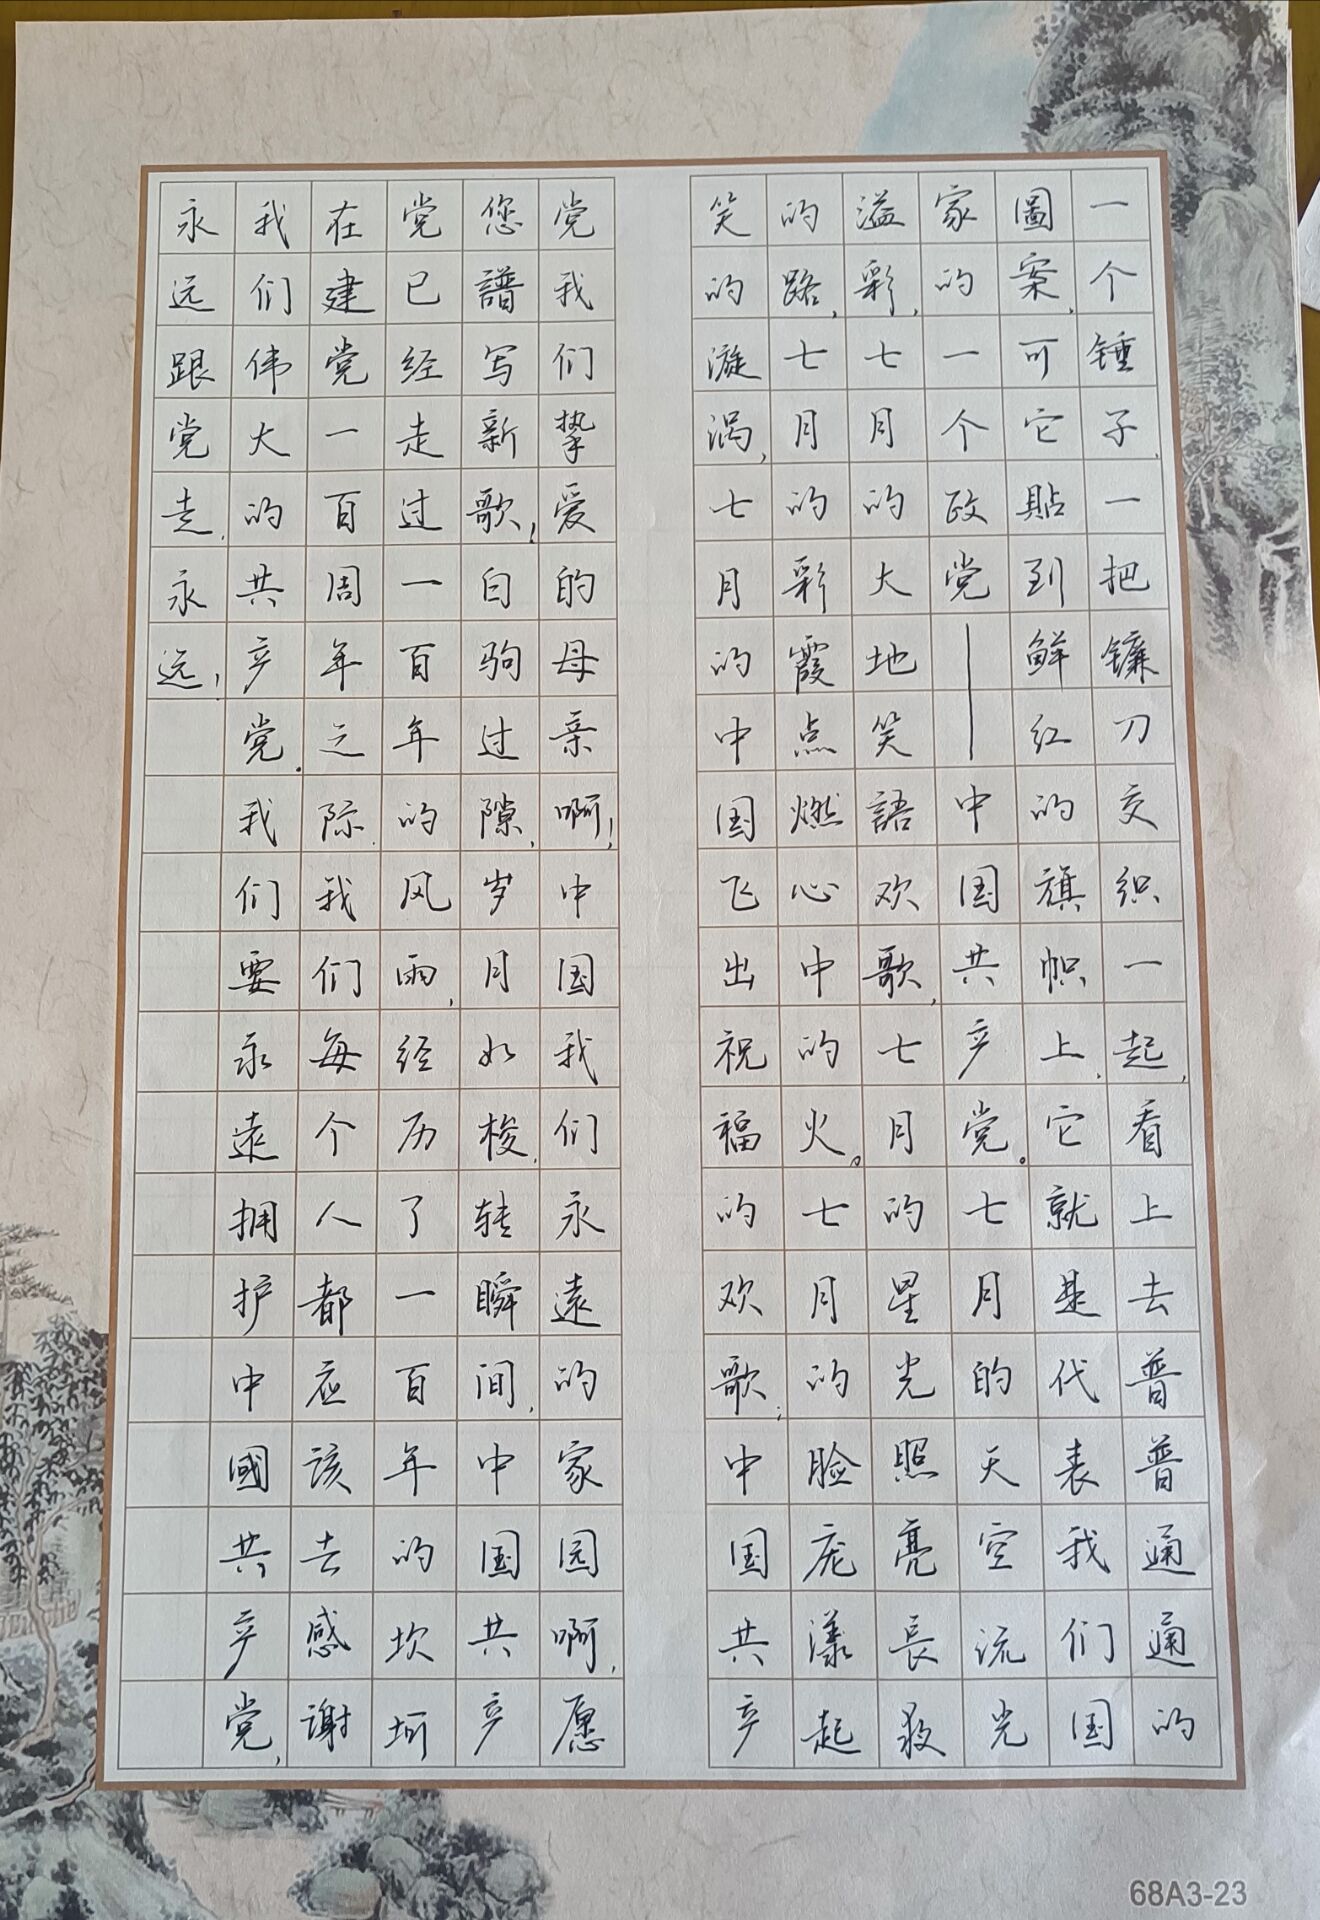 一个锤子,一把镰刀交织一起,看上去普普通通的
圖案,可它貼到鲜红的旗帜上,它就是代表我们国
家的一个政党——中国共产党。七月的天空流光
溢彩,七月的大地笑語欢歌,七月的星光照亮長夜
的路,七月的彩霞点燃心中的火。七月的脸庞漾起
笑的漩涡,七月的中国飞出祝福的欢歌;中国共产
党我们挚爱的母亲啊!中国我们永遠的家园啊,愿
您譜写新歌!白驹过隙,岁月如梭,转瞬间,中国共产
党已经走过一百年的风雨,经历了一百年的坎坷
在建党一百周年之际,我们每个人都应该去感谢
我们伟大的共产党.我们要永遠拥护中國共产党,
永远跟党走,永远!
68A3-23